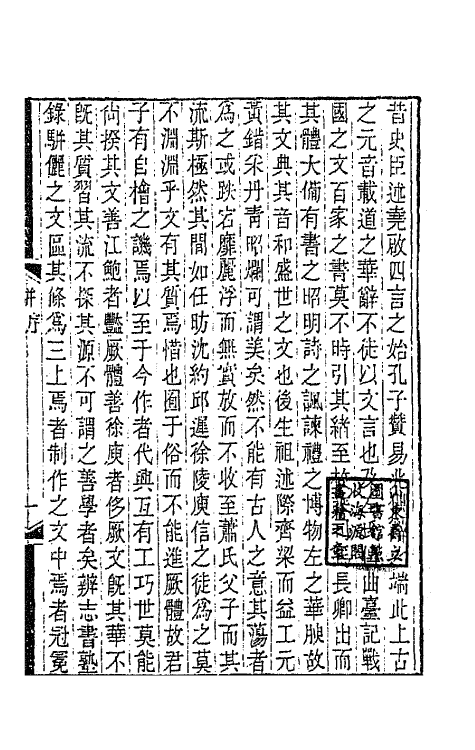 昔史臣述堯啟四言之始孔子贊易兆端此上古
之元音載道之華辭不徒以文言也及曲臺記戰
國之文百家之書莫不時引其緒至長卿出而
其體大備有書之昭明詩之諷諫禮之博物左之華腴故
其文典其音和盛世之文也後生祖述際齊梁而益工元
黃錯采丹青昭爛可謂美矣然不能有古人之意其蕩者
為之或跌宕靡麗浮而無實放而不收至蕭氏父子而其
流斯極然其間如任昉沈約邱遲徐陵庾信之徒為之莫
不淵淵乎文有其質焉惜也囿于俗而不能進厥體故君
子有自檜之譏焉以至于今作者代興互有工巧世莫能
尚揆其文善江鮑者豔厥體善徐庾者侈厥文既其華不
既其質習其流不探其源不可謂之善學者矣辨志書塾
錄駢儷之文區其條為三上焉者制作之文中焉者冠冕
序
一
山東省立
圖書館點
收海源閣
書籍之章